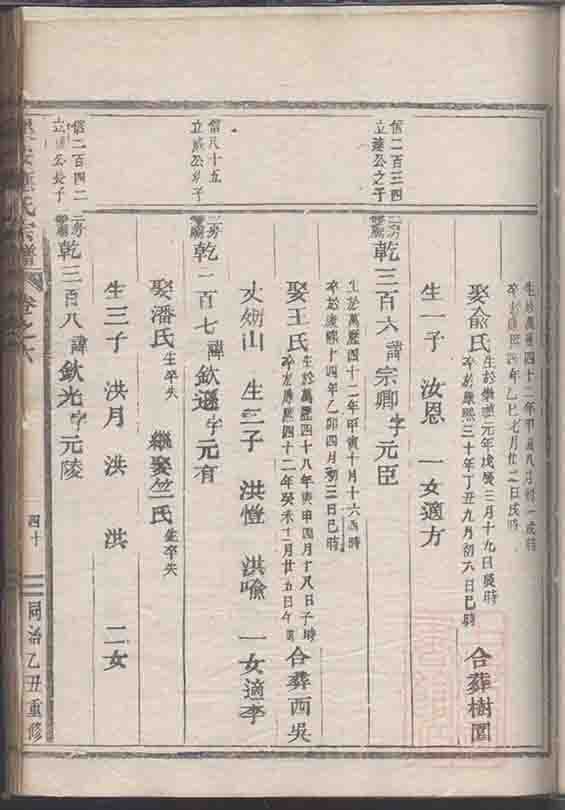 生於萬曆四十二年甲寅八月初一戌時
卒於康熙四年乙巳七月廿二日戌時
娶俞氏 生於崇禎元年戊辰三月十九日辰時
卒於康熙三十年丁丑九月初六日巳時 合葬樹園
生一子 汝恩 一女適方
信二百三四
立達公之子
二房 乾三百六 諱宗卿 字元臣
生於萬歷四十二年甲寅十月十六酉時
卒於康熙十四年乙卯四月初三日巳時
娶王氏 生於萬歷四十八年庚申四月十八日子時
卒於康熙四十二年癸未十二月廿五日午時 合葬西吳
火劒山 生二子 洪愷 洪喻 一女適李
信八十五
立 公 子
二房 乾三百七 諱欽遜 字元有
娶潘氏 生卒失 繼娶竺氏 生卒失
生三子 洪月 洪 洪 二女
信二百四二
立 公長子
二房 乾三百八 諱欽光 字元陵
氏宗譜 卷之六 四十 同治乙丑重修